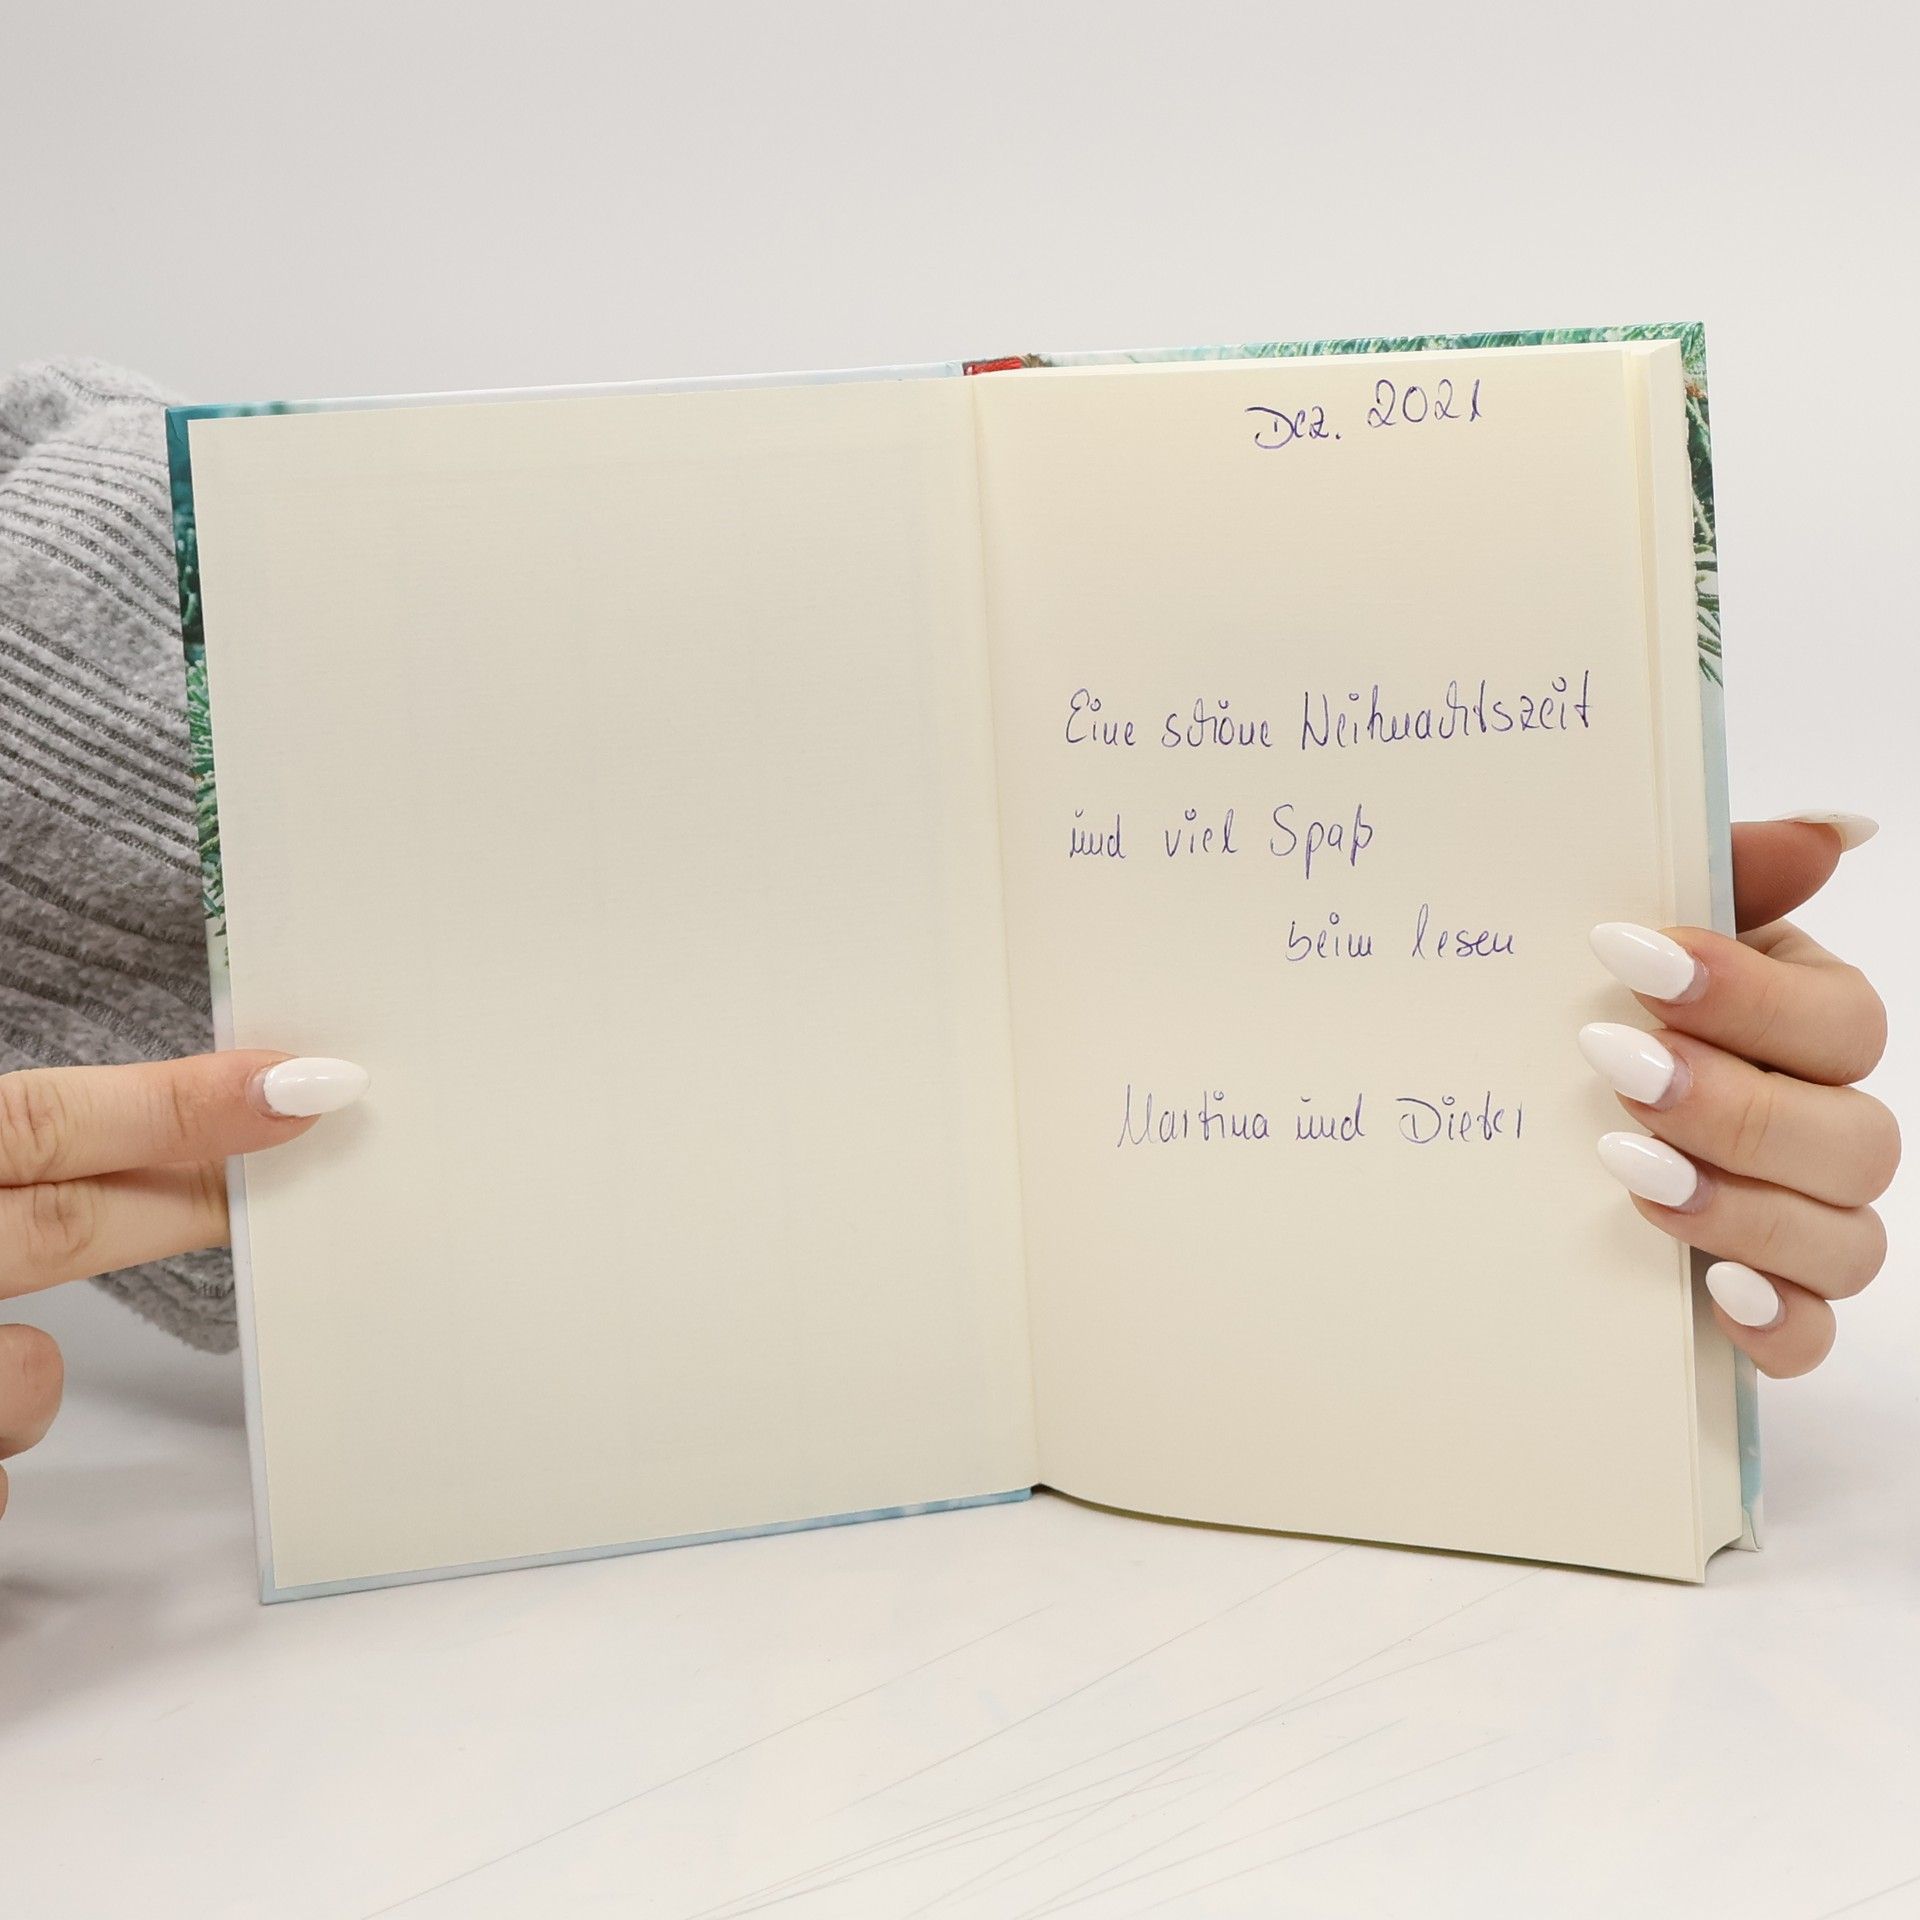 Dez. 2021
Eine schöne Weihnachtszeit
und viel Spaß
beim lesen
Martina und Dieter